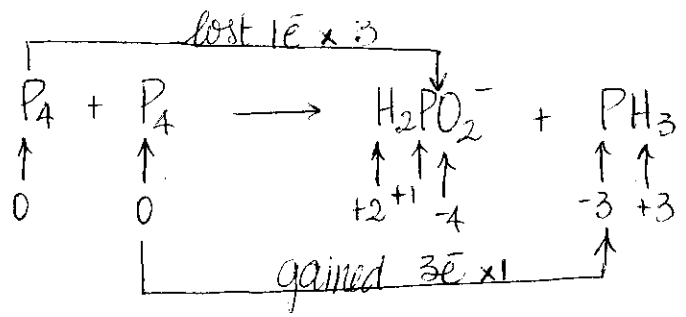 lost 1ē × 3
P₄ + P₄ ⟶ H₂PO₂⁻ + PH₃
0 0 +2 +1 -4 -3 +3
gained 3ē ×1